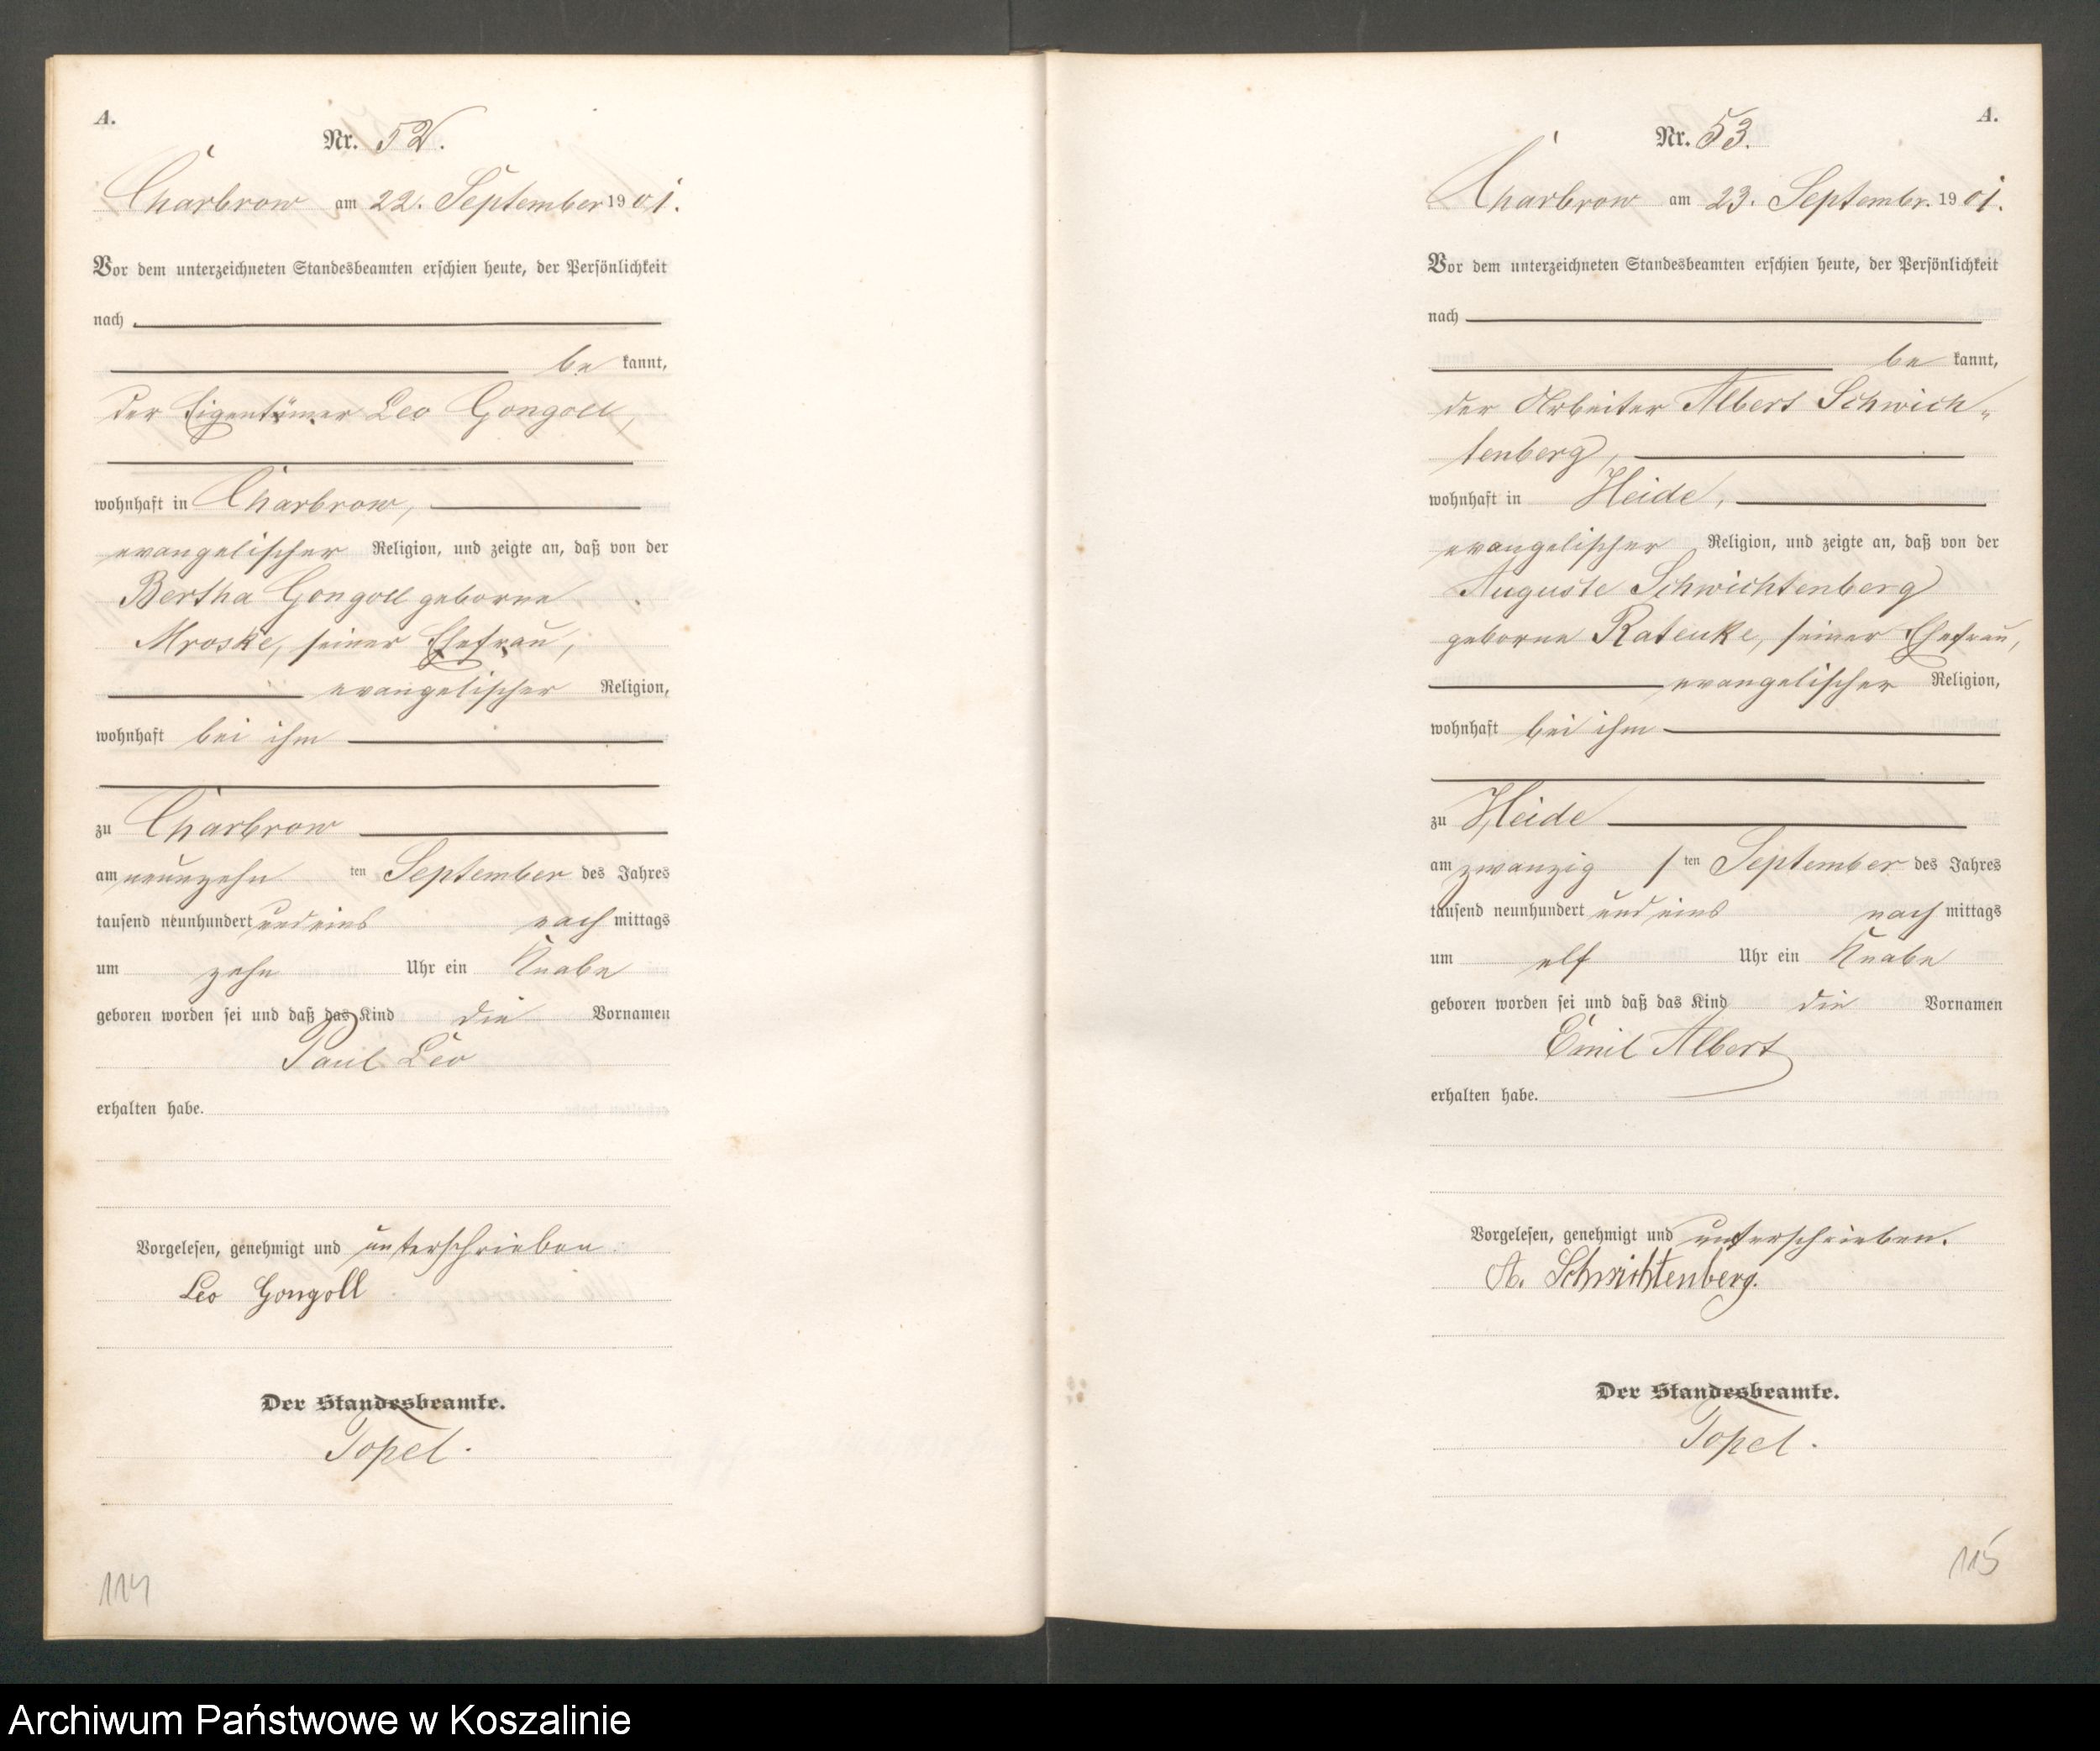 A.
Nr. 52.
Charbrow am 22. September 1901.
Vor dem unterzeichneten Standesbeamten erschien heute, der Persönlichkeit
nach
be kannt,
der Eigentümer Leo Gongoll,
wohnhaft in Charbrow,
evangelischer Religion, und zeigte an, daß von der
Bertha Gongoll geborne
Mroske, seiner Ehefrau,
evangelischer Religion,
wohnhaft bei ihm
zu Charbrow
am neunzehn ten September des Jahres
tausend neunhundert und eins nach mittags
um zehn Uhr ein Knabe
geboren worden sei und daß das Kind die Vornamen
Paul Leo
erhalten habe.
Vorgelesen, genehmigt und unterschrieben.
Leo Gongoll
Der Standesbeamte.
Topel.
114
A.
Nr. 53.
Charbrow am 23. Septembr. 1901.
Vor dem unterzeichneten Standesbeamten erschien heute, der Persönlichkeit
nach
be kannt,
der Arbeiter Albert Schwich-
tenberg,
wohnhaft in Heide,
evangelischer Religion, und zeigte an, daß von der
Auguste Schwichtenberg
geborne Rateuke, seiner Ehefrau,
evangelischer Religion,
wohnhaft bei ihm
zu Heide
am zwanzig ten September des Jahres
tausend neunhundert und eins nach mittags
um elf Uhr ein Knabe
geboren worden sei und daß das Kind die Vornamen
Emil Albert
erhalten habe.
Vorgelesen, genehmigt und unterschrieben.
A. Schwichtenberg.
Der Standesbeamte.
Topel.
115
Archiwum Państwowe w Koszalinie